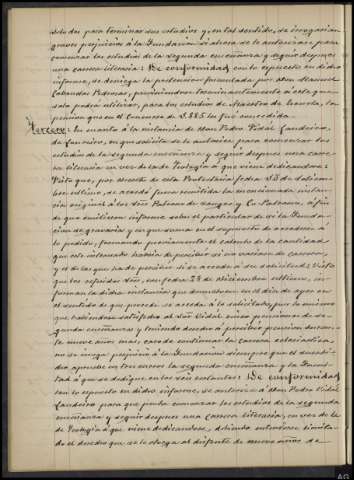 dades para terminar sus estudios y, en tal sentido, se irrogarian
graves perjuicios á la Fundacion si ahora se le autorizase para
comenzar los estudios de la segunda enseñanza y seguir despues
una carrera literaria: De conformidad con lo expuesto en dicho
informe, se deniega la pretension formulada por Don Manuel
Cabandas Pedrosa, previniéndose terminantemente á este que
solo podrá utilizar, para los estudios de Maestro de Escuela, la
pension que en el Concurso de 1.885 le fué concedida.
Tercero: En cuanto á la instancia de Don Pedro Vidal Candeira,
de Lancairo, en que solicita se le autorice para comenzar los
estudios de la segunda enseñanza y seguir despues una carre-
ra literaria en vez de la de Teologia á que viene dedicandose:
Visto que, por acuerdo de esta Junta fecha 28 de Setiem-
bre último, se acordó fuese remitida la mencionada instan-
cia original á los Sres Patronos de sangre y Co-Patronos, á fin
de que emitiesen informe sobre el particular de si la Funda-
cion se gravaria y en que suma en el supuesto de acceder á
lo pedido, formando previamente el cálculo de la cantidad
que este interesado habria de percibir si no variase de carrera,
y el de las que ha de percibir si se accede á su solicitud: Visto
que los referidos Sres, con fecha 29 de Diciembre último, in-
forman la dicha instancia que devuelven en el dia de ayer en
el sentido de que procede se acceda á lo solicitado, por lo mismo
que habiendose satisfecho al Sor Vidal cinco pensiones de se-
gunda enseñanza y teniendo derecho á percibir pension duran-
te nueve años mas, caso de continuar la carrera eclesiastica,
no se irroga perjuicio á la Fundacion siempre que el susodi-
cho apruebe en tres años la segunda enseñanza y la Facul-
tad á que se dedique en los seis restantes: De conformidad
con lo expuesto en dicho informe, se autoriza á Don Pedro Vidal
Candeira para que pueda comenzar los estudios de la segunda
enseñanza y seguir despues una carrera literaria, en vez de la
de Teologia á que viene dedicandose, debiendo entenderse limita-
do el derecho que se le otorga al disfrute de nueve años de